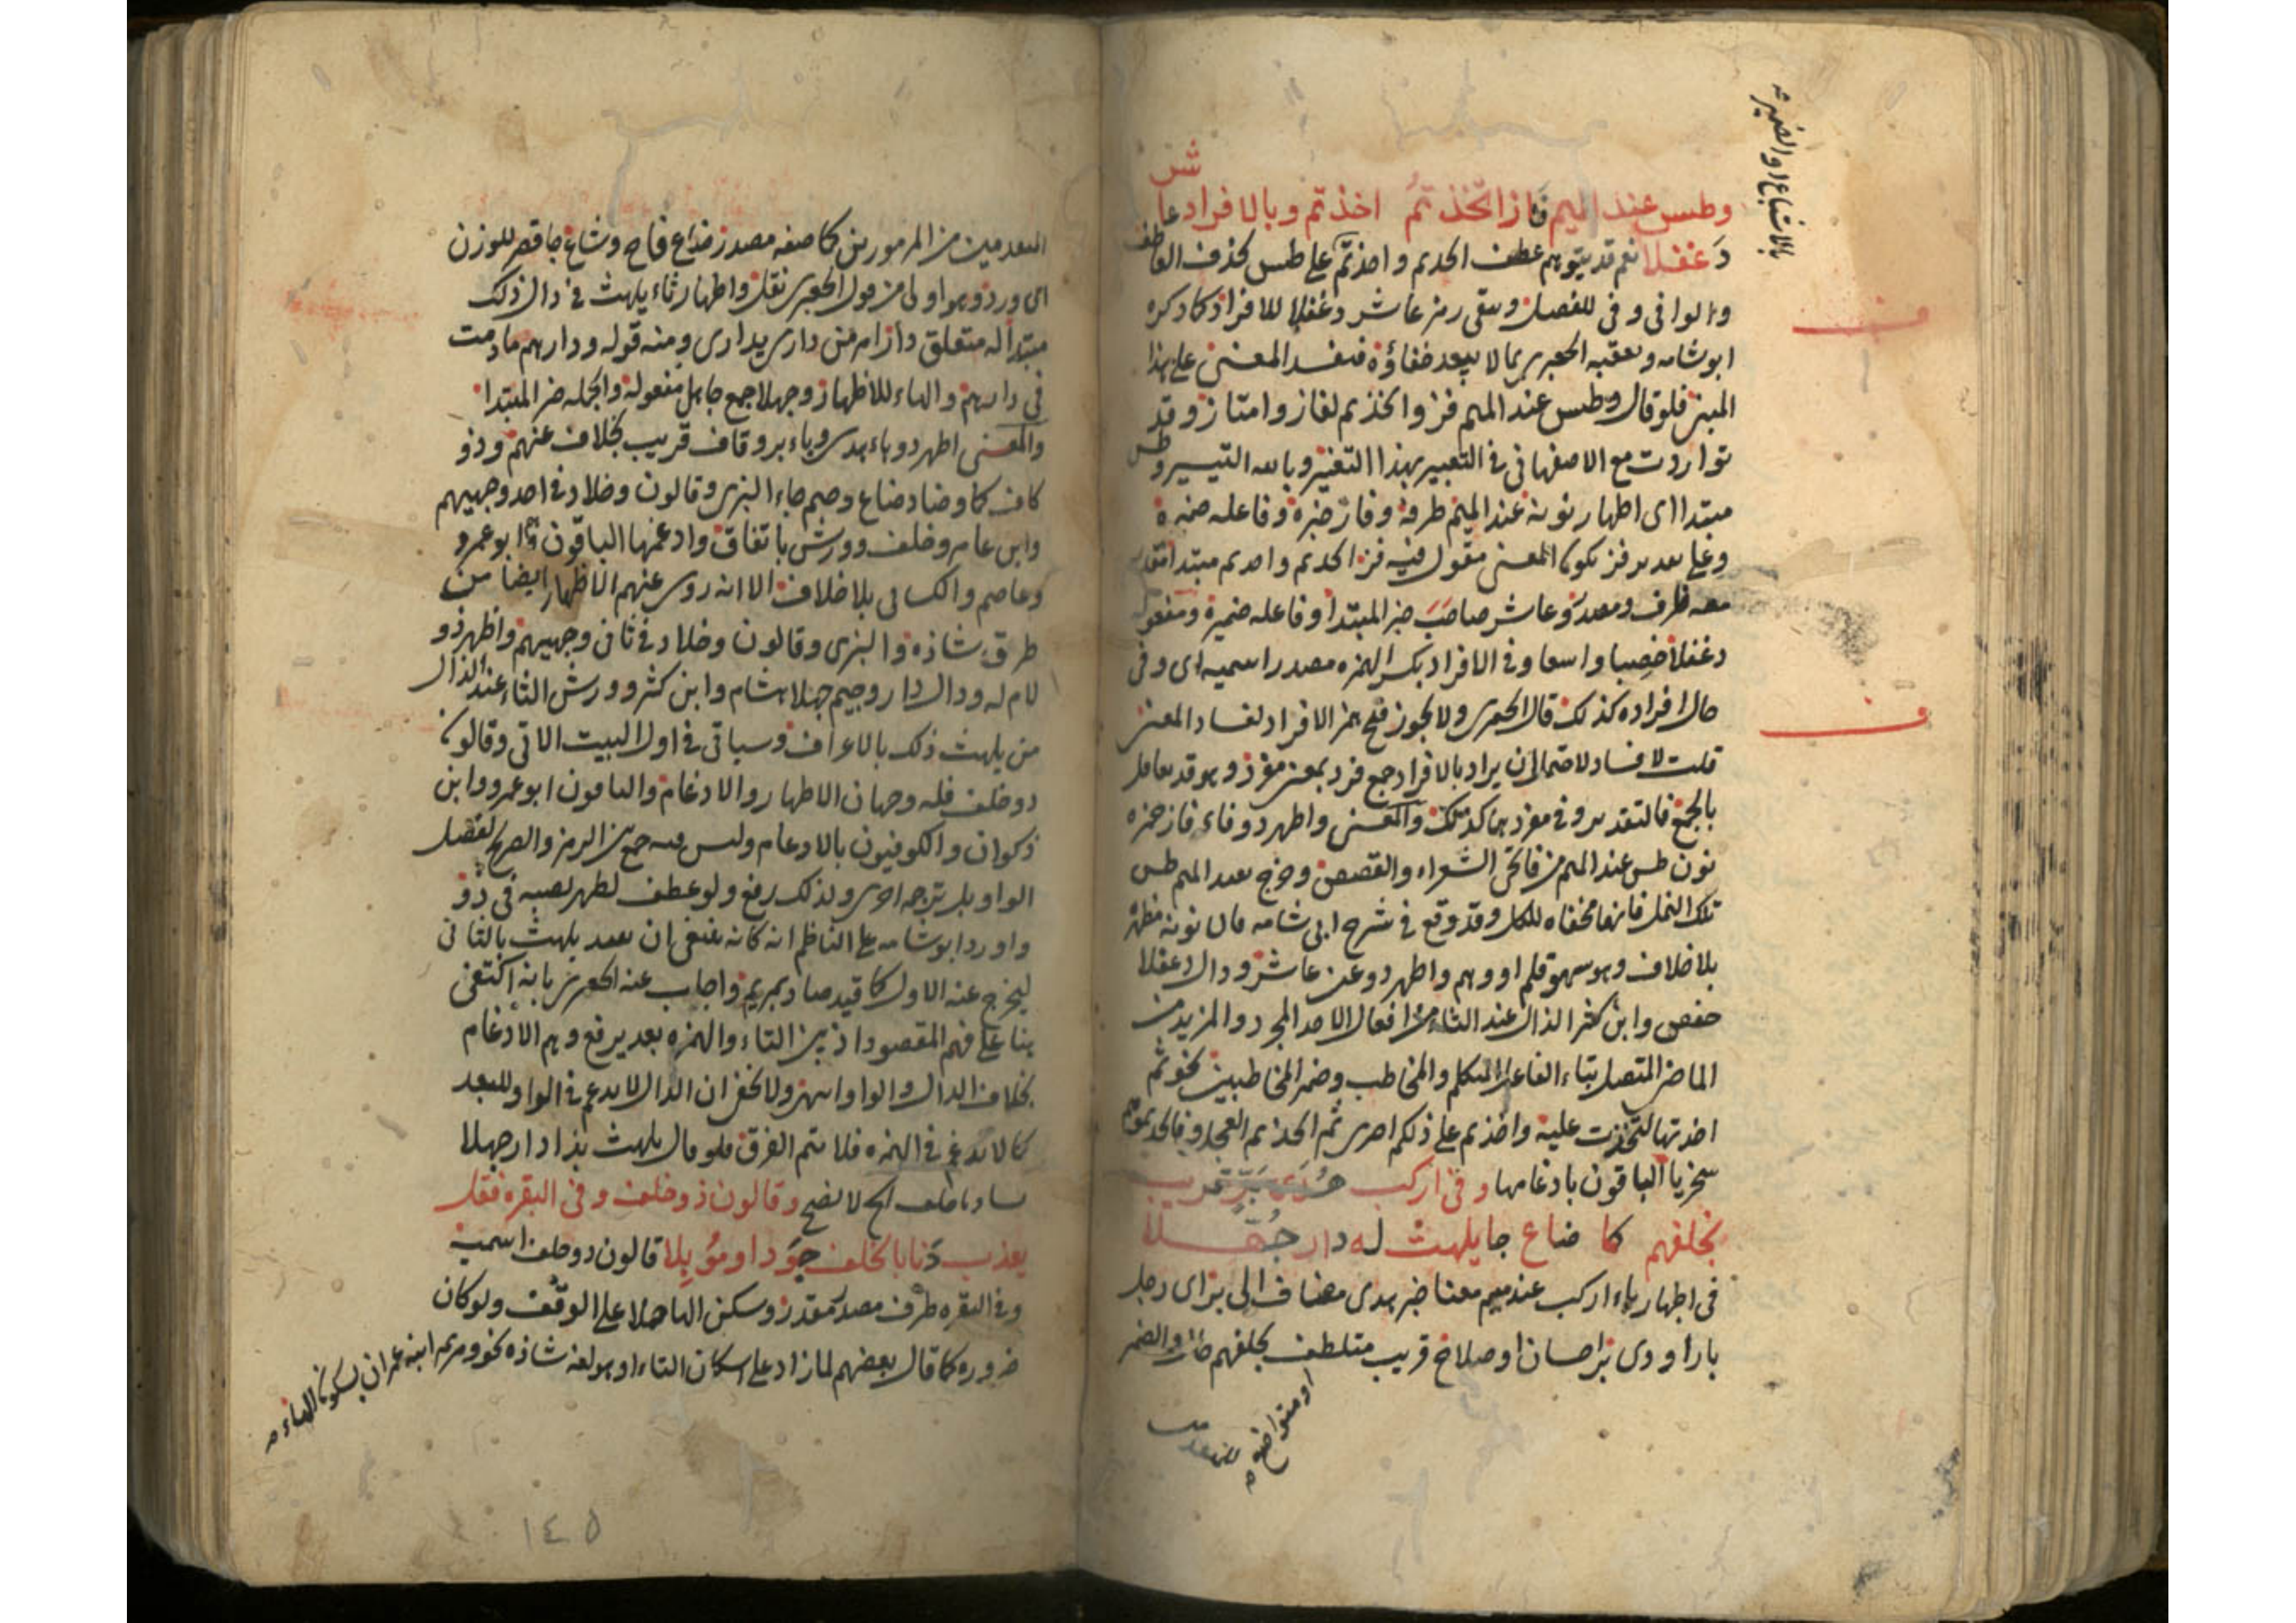 وطس عند الميم فاز اتخذتم اخذتم وبالافراد عا
شر
دغفلا نعم قد يتوهم عطف اتخذتم واخذتم على طس بحذف العاطف
والوا في وفي للفصل وبقي رمز عاشر دغفلا للافراد كما ذكره
ابو شامه وتعقبه الجعبري بما لا يبعد خفاؤه فيفسد المعنى على هذا
فلو قال وطس عند الميم فز واتخذتم لفاز وامتاز وقد
تواردت مع الاصفهاني في التعبير بهذا التغيير التيسير وطس
مبتدا اي اظهار نونه عند الميم ظرفه وفاز خبره وفاعله ضميره
وعلى فز يكون المعنى مقول فيه فز اتخذتم واخذتم مبتدا
معه ظرف وعاشر صاحب خبر المبتدا وفاعله ضميره ومفعوله
دغفلا خصيبا واسعا وفي الافراد بكسر الهمزه مصدر اسميه اي وفي
حال افراده كذلك قال الجعبري ولا يجوز فتح همز الافراد لفساد المعنى
قلت لا فساد لاحتمال ان يراد بالافراد جمع فرد بمعنى مفرد وهو قد يعامل
بالجمع فالتقدير وفي مفرديهما كذلك والمعنى واظهر ذو فاء فاز حمزه
نون طس عند الميم من فاتحتي الشعراء والقصص وخرج بعند الميم طس
تلك النمل فانها مخفاه للكل وقد وقع في شرح ابي شامه قال نونه مظهر
بلا خلاف وهو سهو قلم او وهم واظهر ذو عين عاشر ودال دغفلا
حفص وابن كثير الذال عند التاء من افعال الاخذ المجرد والمزيد من
الماضي المتصل بتاء الفاعل المتكلم والمخاطب وضمير المخاطبين نحو ثم
اخذتها لتخذت عليه واخذتم على ذلكم اصري ثم اتخذتم العجل وفاتخذتموهم
سخريا الباقون بادغامها وفي اركب هدى بر قريب
بخلفهم كما ضاع جا يلهث له دار جهلا
في اظهار باء اركب عند ميم معنا خبر هدى مضاف الى بر اي رجل
بار او ذي بر احسان او صلاح قريب متلطف بخلفهم والضمير
او متواضع
بالاشباع او الضمير
من المرموزين كما صفه مصدر ضاع فاح وشاع جا قصر للوزن
اي ورد وهو اولى من قول الجعبري نقل واظهار ثاء يلهث في ذال ذلك
مبتدا له متعلق دار امر من دارى يداري ومنه قوله ودارهم ما دمت
في دارهم والهاء للاظهار وجهلا جمع جاهل مفعوله والجمله خبر المبتدا
والمعنى اظهر ذو هاء هدى وباء بر وقاف قريب بخلاف عنهم وذو
كاف كما وضاد ضاع وجيم جاء البزي وقالون وخلاد في احد وجهيهم
وابن عامر وخلف وورش باتفاق وادغمها الباقون ابو عمرو
وعاصم والكسائي بلا خلاف الا انه روي عنهم الاظهار ايضا من
طرق شاذه والبزي وقالون وخلاد في ثاني وجهيهم واظهر ذو
لام له ودال دار وجيم جهلا هشام وابن كثير وورش الثاء عند الذال
من يلهث ذلك بالاعراف وسياتي في اول البيت الاتي وقالون
ذو خلف فله وجهان الاظهار والادغام والباقون ابو عمرو وابن
ذكوان والكوفيون بالادغام وليس فيه جمع بين الرمز والصريح لفصل
الواو بل ترجمه اخرى ولذلك رفع ولو عطف لظهر نصبه في ذو
واورد ابو شامه على الناظم انه كان ينبغي ان يقيد يلهث بالثاني
ليخرج عنه الاول كما قيد صاد بمريم واجاب عنه الجعبري بانه اكتفى
بنا على فهم المقصود اذ بين التاء والهمزه بعد يرفع وهم الادغام
بخلاف الذال والواو ولا يخفى ان الدال لا يدغم في الواو للبعد
كما لا تدغم في الهمزه فلا يتم الفرق فلو قال يلهث بذا دار جهلا
وقالون ذو خلف وفي البقره فقل
يعذب دنا بالخلف جودا وموبلا قالون ذو خلف اسميه
وفي البقره ظرف مصدر مقدر وسكن الها حملا على الوقف ولو كان
ضروره كما قال بعضهم لما زاد على اسكان التاء او هو لغه شاذه نحو ومريم ابنه عمران بسكون الهاء
١٤٥